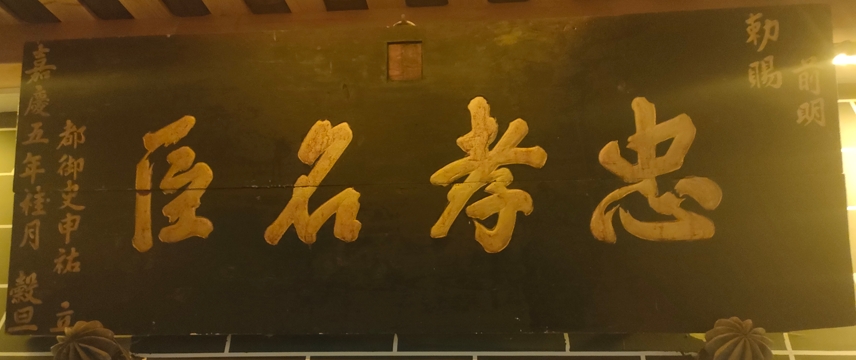 前明
勅賜
忠孝名臣
都御史申祐 立
嘉慶五年桂月 穀旦